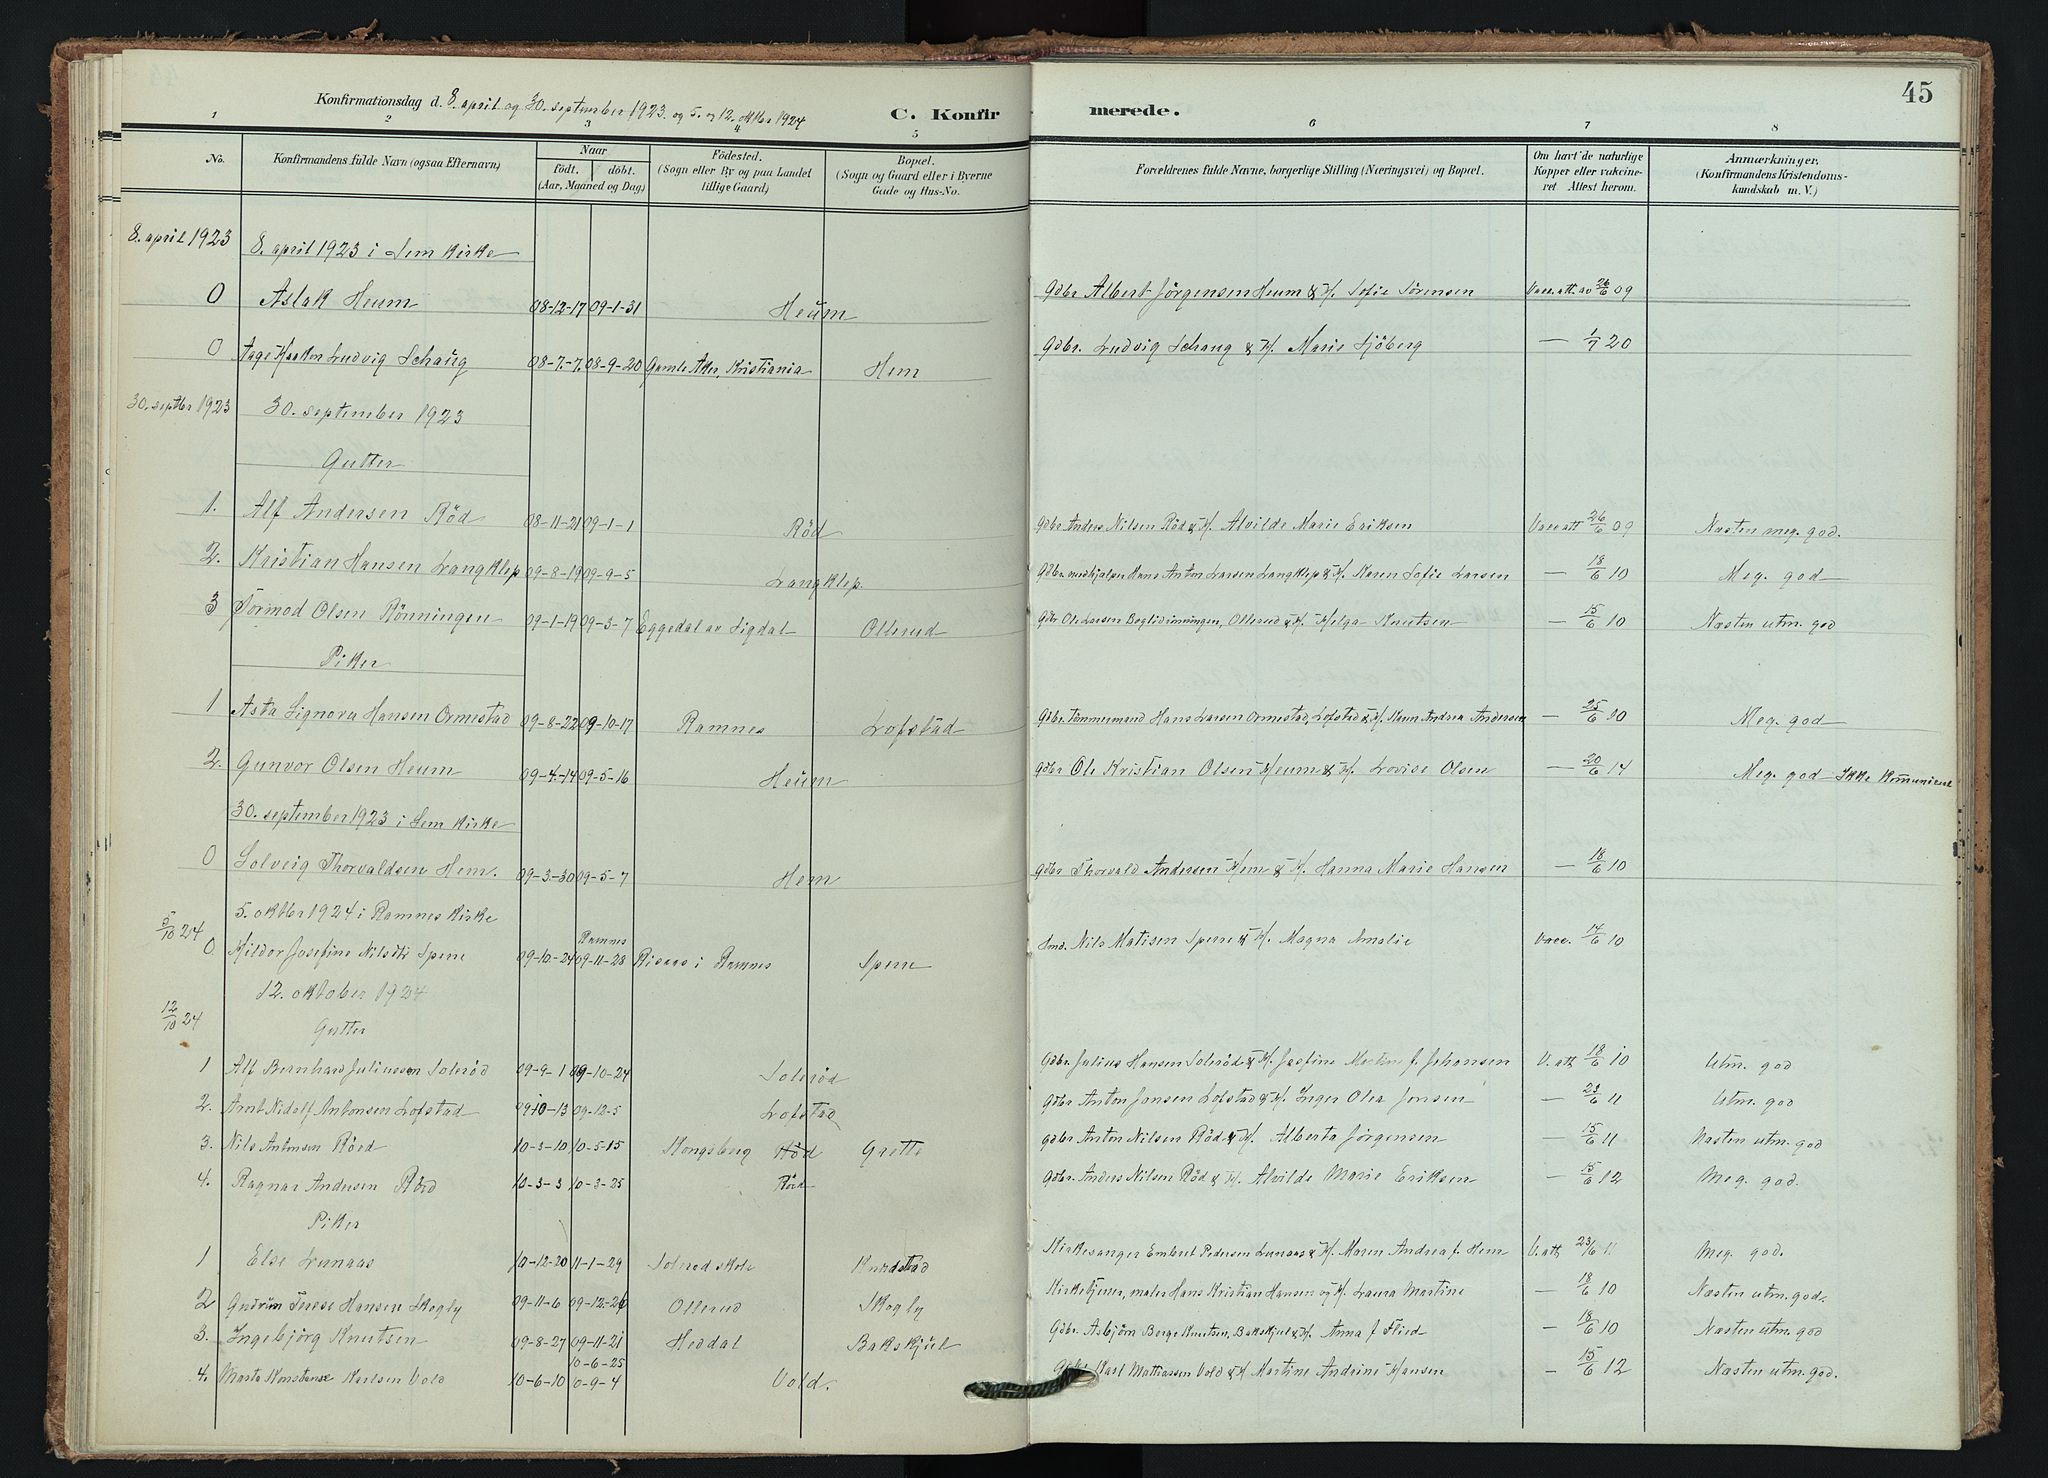 45
Konfirmationsdag d. 8. april og 30. september 1923 og 5. og 12. oktbr 1924
C. Konfirmerede.
1 2 3 4 5 6 7 8
No. Konfirmandens fulde Navn (ogsaa Efternavn). Naar født, døbt. (Aar, Maaned og Dag) Fødested. (Sogn eller By og paa Landet tillige Gaard) Bopæl. (Sogn og Gaard eller i Byerne Gade og Hus-No. Forældrenes fulde Navne, borgerlige Stilling (Næringsvei) og Bopæl. Om havt de naturlige Kopper eller vakcineret Attest herom. Anmærkninger. (Konfirmandens Kristendomskundskab m. V.)
8. april 1923 8. april 1923 i Sem kirke
0 Aslak Heum 08-12-17 09-1-31 Heum Gdbr Albert Jørgensen Heum & H. Sofie Sørensen Vacc. att. av 26/6 09
0 Aage Haakon Ludvig Schaug 08-7-7. 08-9-20 Gamle Aker, Kristiania Hem Gdbr. Ludvig Schaug & H. Marie Sjöberg — 1/7 20
30. septbr 1923 30. september 1923
Gutter
1. Alf Andersen Röd 08-11-21 09-1-1 Röd Gdbr Anders Nilsen Röd & H. Alvilde Marie Eriksen Vacc att 26/6 09 Næsten meg. god.
2. Kristian Hansen Langklep 09-8-19 09-9-5 Langklep. Gdbr. Hans Anton Larsen Langklep & H. Karen Sofie Larsen — 18/6 10 Meg. god
3 Tormod Olsen Rönningen 09-1-19 09-3-7 Eggedal av Sigdal Ollerud Gdbr Ole Larsen Ollerud & H. Helga Knutsen — 15/6 10 Næsten utm. god
Piker
1 Asta Signora Hansen Ormestad 09-8-22 09-10-17 Ramnes Lofstad Gdbr. Tömmermand Hans Larsen Ormestad, Lofstad & H. Karen Andrea Andersen — 25/6 10 Meg. god
2. Gunvor Olsen Heum 09-4-14 09-5-16 Heum Gdbr Ole Kristian Olsen Heum & H. Lovise Olsen — 20/6 14 Meg. god Ikke Komunicert
30. september 1923 i Sem kirke
0 Solveig Thorvaldsen Hem. 09-3-30 09-5-7 Hem Gdbr Thorvald Andersen Hem & H. Hanna Marie Hansen — 18/6 10
5/10 24 5. oktbr 1924 i Ramnes kirke
0 Hildor Josefine Nilsdtr Sperre 09-10-24 Ramnes 09-11-28 i Ramnes Sperre Smd. Nils Matisen Sperre & H. Magna Amalie Vacc. 14/6 10
12/10 24 12. oktober 1924
Gutter
1 Alf Bernhard Juliussen Solerød 09-9-1 09-10-24 Solerød Gdbr. Julius Hansen Solerød & H. Josefine Martine f. Johansen V. att 18/6 10 Utm. god
2. Arnt Nidolf Antonsen Lofstad 09 10-13 09-12-5 Lofstad Gdbr Anton Jonsen Lofstad & H. Inger Olea Jonsen — 23/6 11 Utm. god
3. Nils Antonsen Röed 10-3-10 10-5-15 Kongsberg Röd Grette gdbr Anton Nilsen Röd & H. Alberta Jørgensen — 15/6 11 Næsten utm. god
4. Ragnar Andersen Röed 10-3-3 10-3-25 Röed Gdbr. Anders Nilsen Röd & H. Alvilde Marie Eriksen — 15/6 12 Meg. god.
Piker
1 Else Lunaas 10-12-20 11-1-29 Solerød skole Knutstad Kirkesanger Embret Pedersen Lunaas & H. Maren Andrea f. Hem V. att 23/6 11 Meg. god.
2 Gudrun Terese Hansen Skogly 09-11-6 09-12-26 Ollerud Skogly Kirketjener, maler Hans Kristian Hansen og H. Laura Martine — 18/6 10 Næsten utm. god.
3. Ingebjörg Knutsen 09-8-27 09-11-21 Heddal Bakskjul Gdbr. Asbjörn Berge Knutsen, Bakskjul & H. Anna f. Flied — 18/6 10 Næsten utm. god
4. Marta Konstanse Karlsen Vold 10-6-10 10-6-25 10-9-4 Vold. Karl Mathiassen Vold & H. Martine Andrine Hansen — 15/6 12 Næsten utm. god.